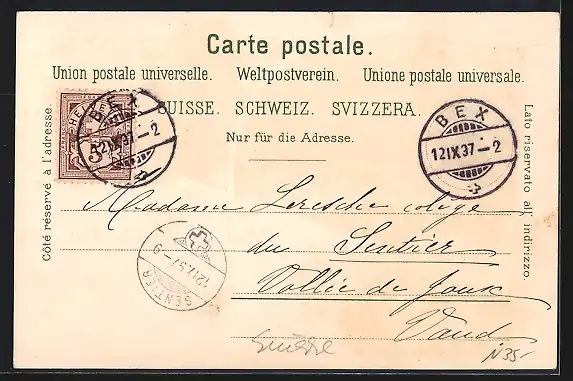 Carte postale.
Union postale universelle. Weltpostverein. Unione postale universale.
SUISSE. SCHWEIZ. SVIZZERA.
Nur für die Adresse.
Côté réservé à l'adresse.
Lato riservato all' indirizzo.
BEX
12 IX 97-2
BEX
12 IX 97-2
5
Madame Leresche
du Sentier
Vallée de Joux
Vaud
SENTIER
12 IX 97-9
Suisse
N35-